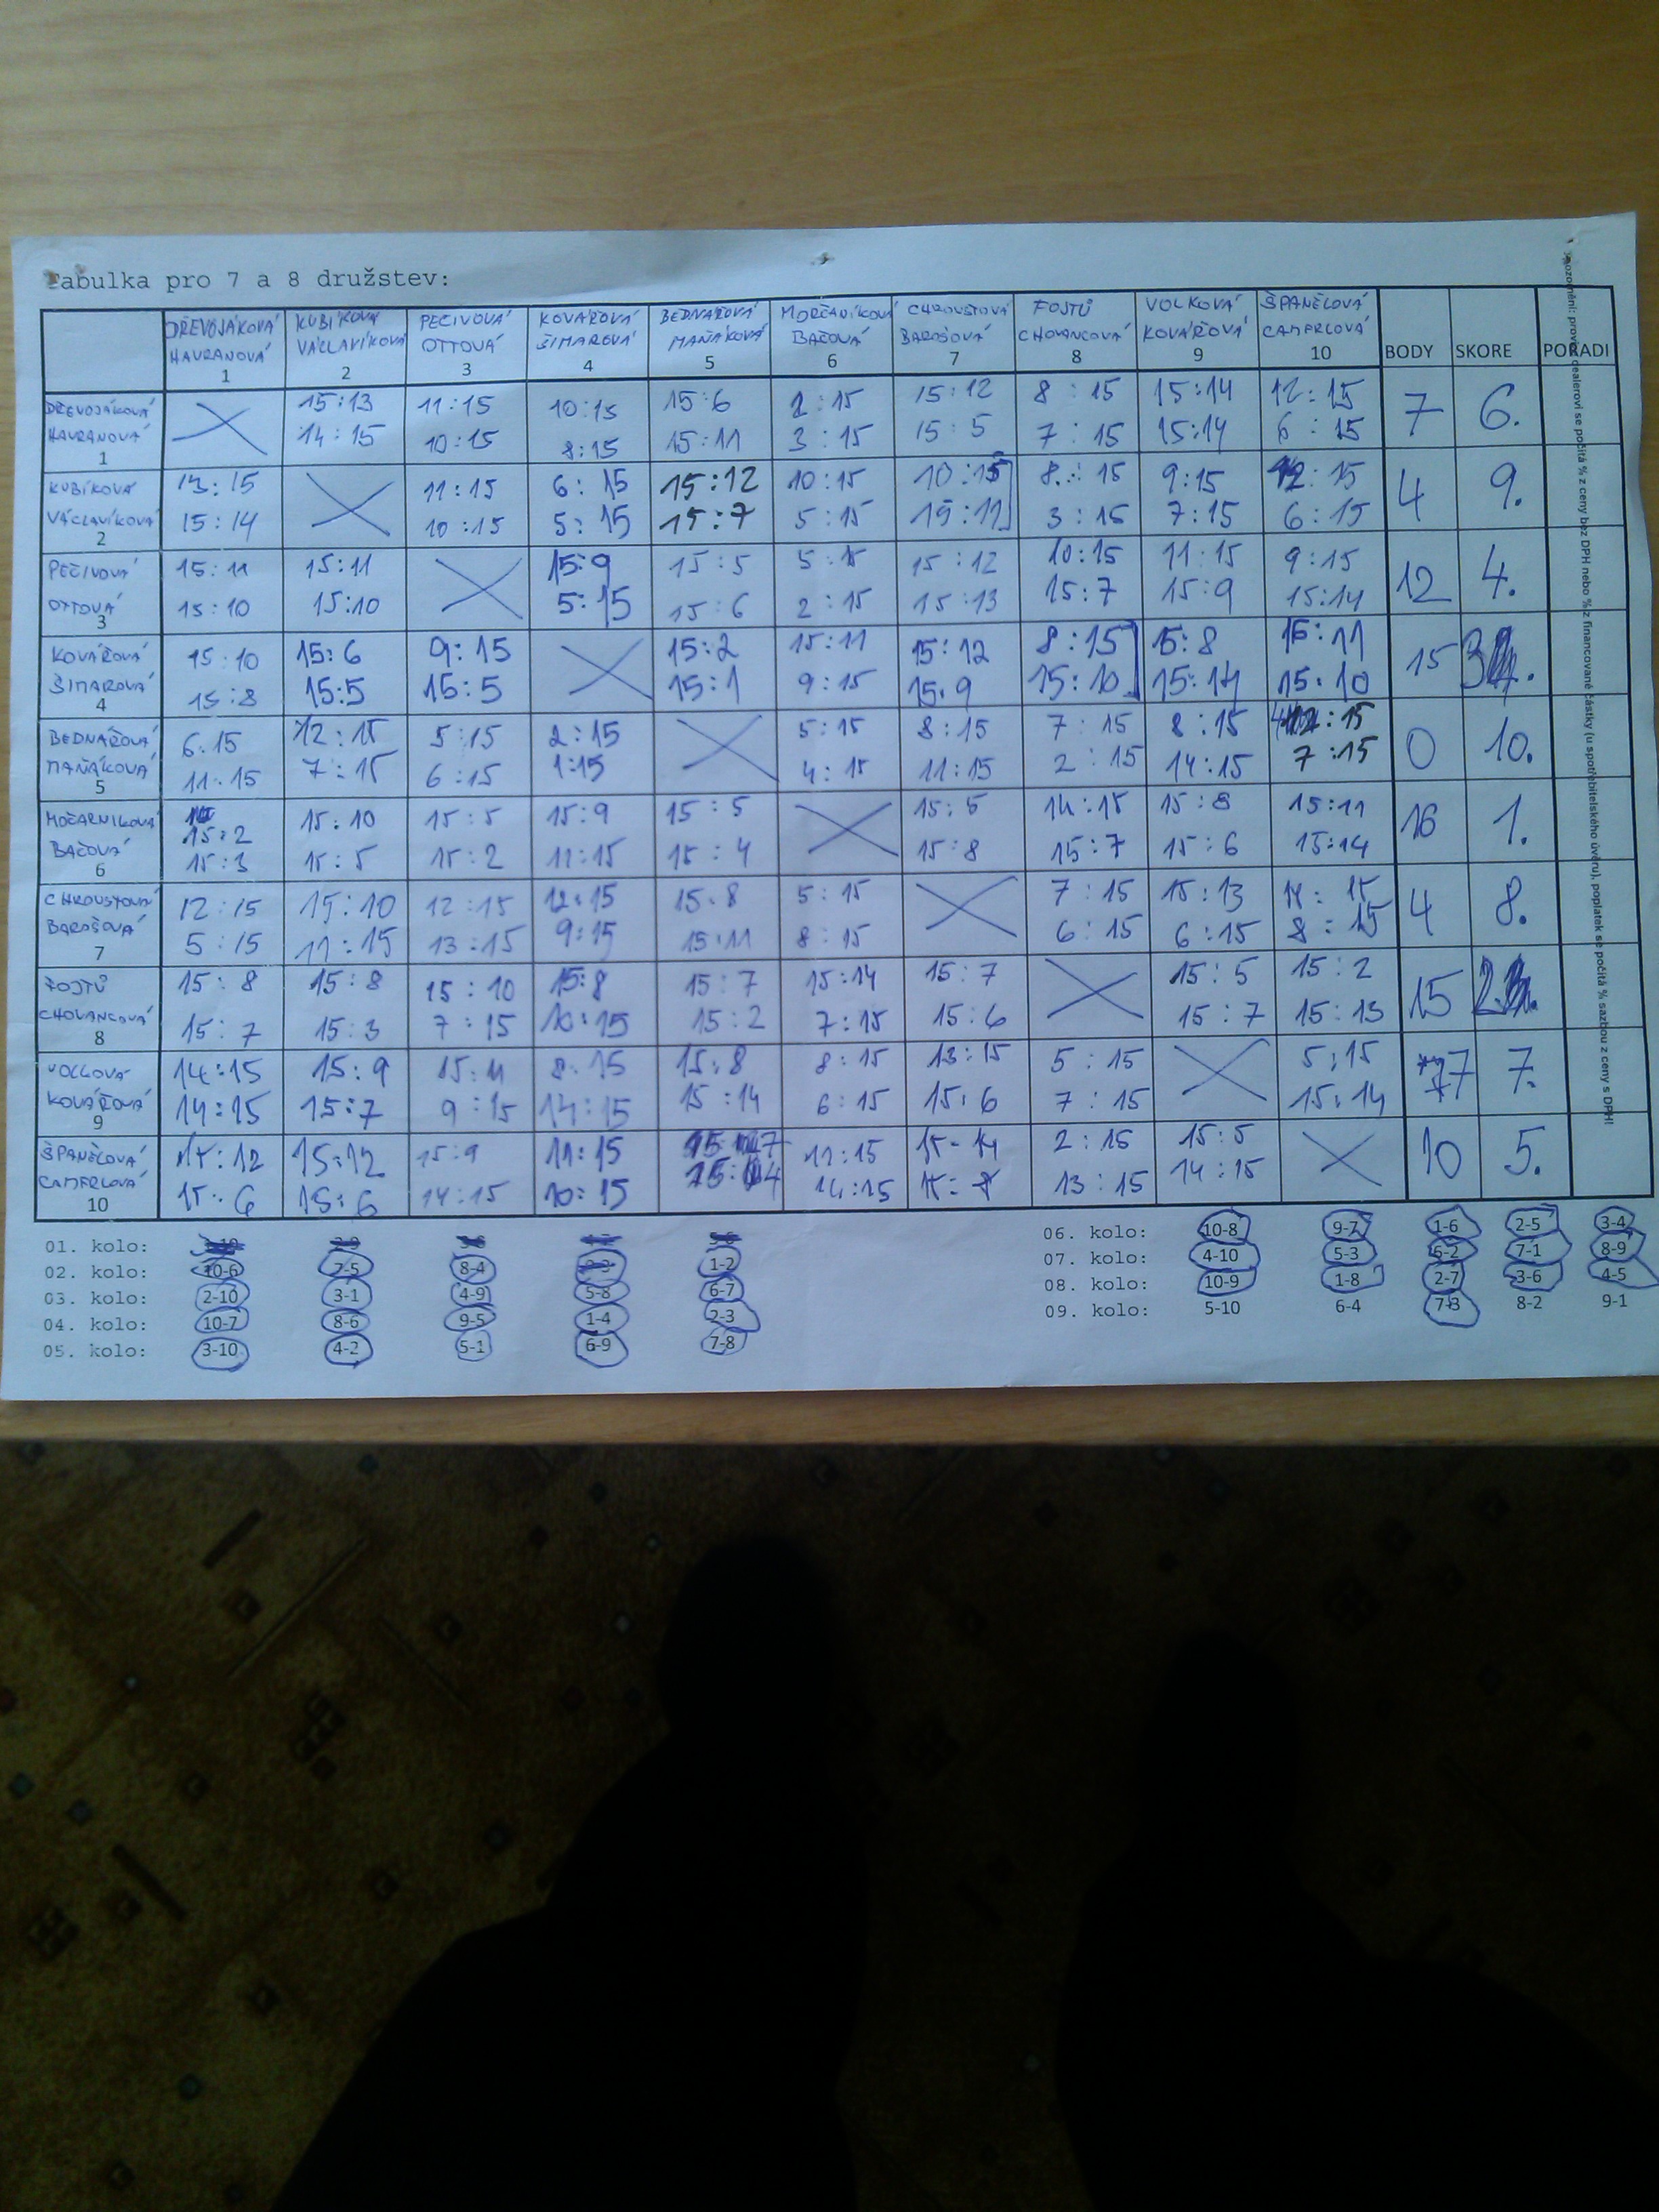 Tabulka pro 7 a 8 družstev:
DŘEVOJÁKOVÁ HAVRANOVÁ 1 KUBÍKOVÁ VÁCLAVÍKOVÁ 2 PECIVOVÁ OTTOVÁ 3 KOVÁŘOVÁ ŠIMAROVÁ 4 BEDNAŘOVÁ MAŇÁKOVÁ 5 BAČOVÁ 6 CHROUSTOVÁ BAROŠOVÁ 7 FOJTŮ CHOVANCOVÁ 8 VOLKOVÁ KOVÁŘOVÁ 9 ŠPANĚLOVÁ CAMFRLOVÁ 10 BODY SKORE PORADI
DŘEVOJÁKOVÁ 15:13 11:15 10:15 15:6 15:12 8:15 15:14 12:15 7 6.
HAVRANOVÁ 14:15 10:15 8:15 15:11 3:15 15:5 7:15 15:14 6:15
1
KUBÍKOVÁ 13:15 11:15 6:15 15:12 10:15 10:15 8:15 9:15 12:15 4 9.
VÁCLAVÍKOVÁ 15:14 10:15 5:15 15:7 5:15 15:11 3:15 7:15 6:15
2
PEČIVOVÁ 15:11 15:11 15:9 15:5 5:15 15:12 10:15 11:15 9:15 12 4.
OTTOVÁ 15:10 15:10 5:15 15:6 2:15 15:13 15:7 15:9 15:14
3
KOVÁŘOVÁ 15:10 15:6 9:15 15:2 15:11 15:12 8:15 15:8 15:11 15 3.
ŠIMAROVÁ 15:8 15:5 15:5 15:1 9:15 15:9 15:10 15:14 15:10
4
BEDNAŘOVÁ 6:15 12:15 5:15 2:15 5:15 8:15 7:15 8:15 12:15 0 10.
MAŇÁKOVÁ 11:15 7:15 6:15 1:15 4:15 11:15 2:15 14:15 7:15
5
MOČARNIKOVÁ 15:2 15:10 15:5 15:9 15:5 15:5 14:15 15:8 15:11 16 1.
BAČOVÁ 15:3 15:5 15:2 11:15 15:4 15:8 15:7 15:6 15:14
6
CHROUSTOVÁ 12:15 15:10 12:15 12:15 15:8 5:15 7:15 15:13 14:15 4 8.
BAROŠOVÁ 5:15 11:15 13:15 9:15 15:11 8:15 6:15 6:15 8:15
7
FOJTŮ 15:8 15:8 15:10 15:8 15:7 15:14 15:7 15:5 15:2 15 2.
CHOVANCOVÁ 15:7 15:3 7:15 10:15 15:2 7:15 15:6 15:7 15:13
8
VOLKOVÁ 14:15 15:9 15:11 8:15 15:8 8:15 13:15 5:15 5:15 7 7.
KOVÁŘOVÁ 14:15 15:7 9:15 14:15 15:14 6:15 15:6 7:15 15:14
9
ŠPANĚLOVÁ 15:12 15:12 15:9 11:15 11:15 15:14 2:15 15:5 10 5.
CAMFRLOVÁ 15:6 15:6 14:15 10:15 14:15 15:8 13:15 14:15
10
01. kolo:
02. kolo: 10-6 7-5 8-4 1-2
03. kolo: 2-10 3-1 4-9 5-8 6-7
04. kolo: 10-7 8-6 9-5 1-4 2-3
05. kolo: 3-10 4-2 5-1 6-9 7-8
06. kolo: 10-8 9-7 1-6 2-5 3-4
07. kolo: 4-10 5-3 6-2 7-1 8-9
08. kolo: 10-9 1-8 2-7 3-6 4-5
09. kolo: 5-10 6-4 7-3 8-2 9-1
dealerovi se počítá % z ceny bez DPH nebo % z financované částky (u spotřebitelského úvěru), poplatek se počítá % sazbou z ceny s DPH!